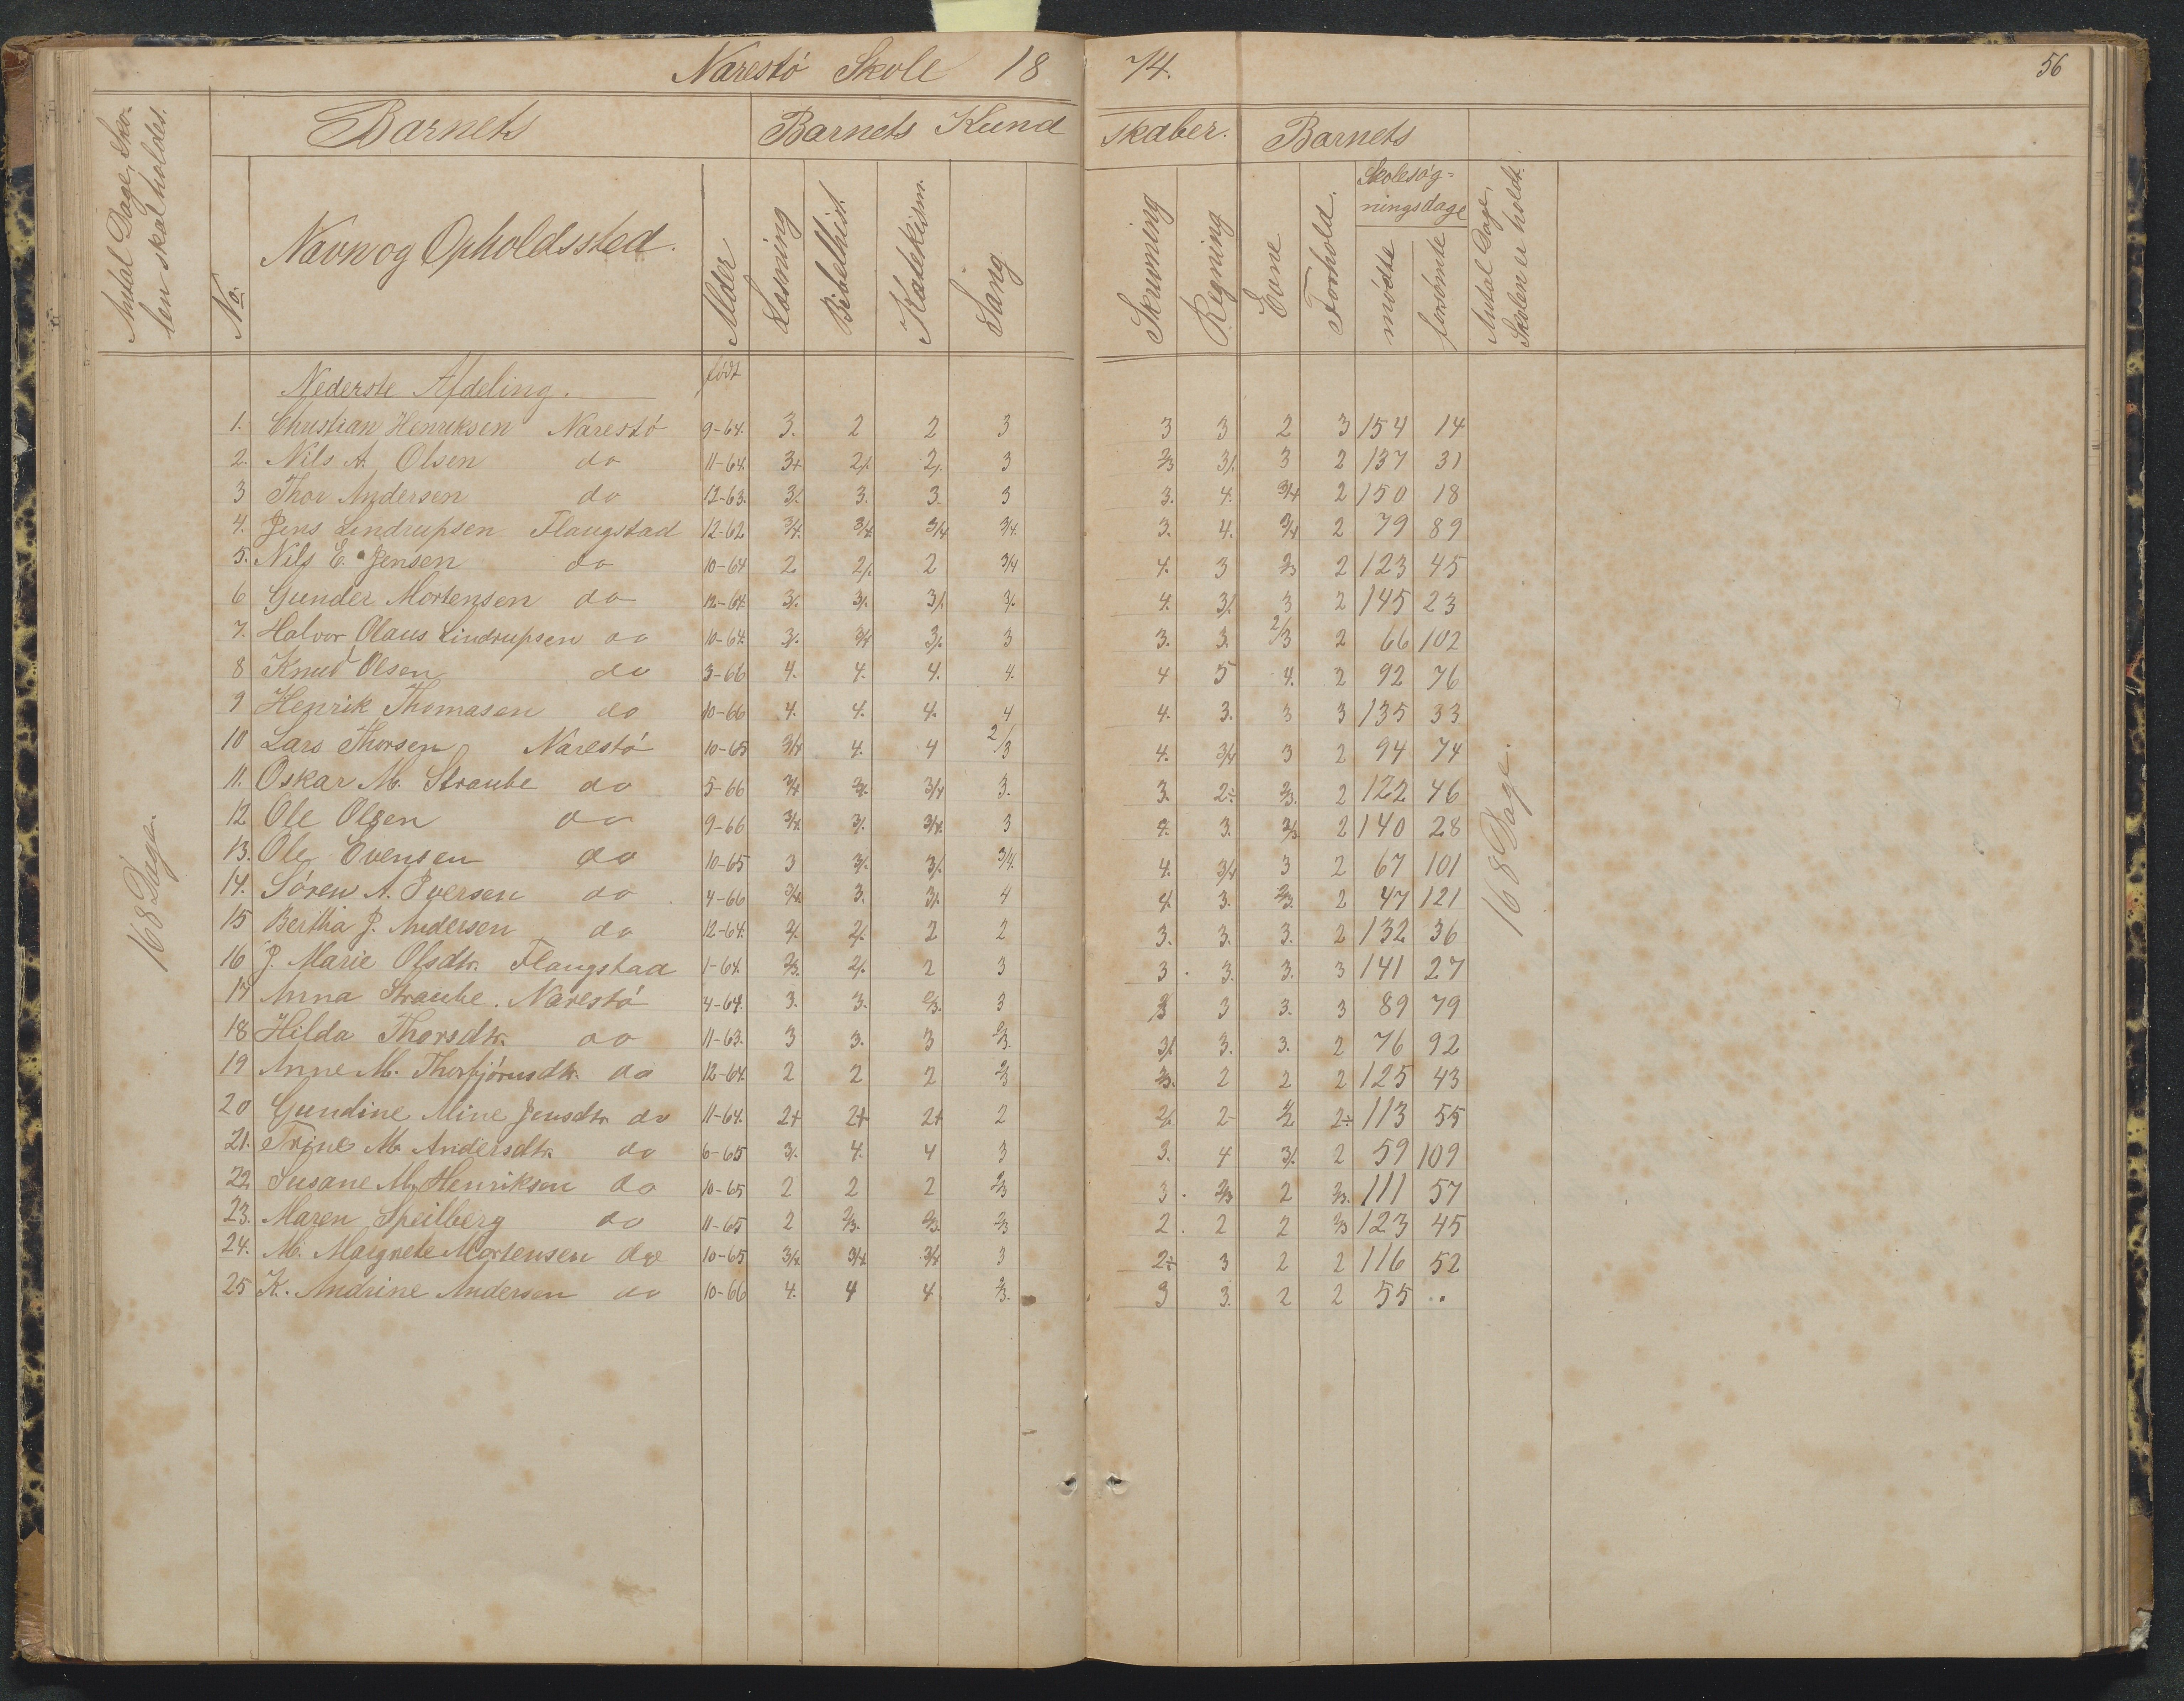 Narestö Skole 1874.
56
Antal Dage, Skolen skal holdes.
Barnets
Barnets Kundskaber.
Barnets
No.
Navn og Opholdssted.
Alder
Læsning
Bibelhist.
Katekism.
Sang
Skrivning
Regning
Evne
Forhold.
Skolesögningsdage
mödte
forsömte
Antal Dage, Skolen er holdt.
Nederste Afdeling. födt
1. Christian Henriksen Narestö 9-64. 3. 2 2 3 3 3 2 3 154 14
2. Nils A. Olsen do 11-64. 3+ 2/. 2/. 3 2/3 3/. 3 2 137 31
3 Thor Andersen do 12-63. 3/. 3. 3. 3 3. 4. 3/4 2 150 18
4. Jens Lindrupsen Flangstad 12-62 3/4. 3/4. 3/4 3/4. 3. 4. 3/4 2 79 89
5. Nils E. Jensen do 10-64 2 2/. 2 3/4 4. 3 2/3 2 123 45
6 Gunder Mortensen do 12-64. 3/. 3/. 3/. 3/. 4. 3/. 3 2 145 23
7. Halvor Olaus Lindrupsen do 10-64. 3/. 3/4 3/. 3 3. 3. 2/3 2 66 102
8 Knud Olsen do 3-66 4. 4. 4. 4. 4 5 4. 2 92 76
9 Henrik Thomasen do 10-66 4. 4. 4. 4 4. 3. 3 3 135 33
10 Lars Thorsen Narestö 10-65 3/4 4. 4 2/3 4. 3/4 3 2 94 74
11. Oskar M. Straube do 5-66 3/4 3/. 3/4 3. 3. 2÷ 2/3. 2 122 46
12 Ole Olsen do 9-66 3/4. 3/. 3/4. 3 4. 3. 2/3 2 140 28
13. Ole Evensen do 10-65 3 3/. 3/. 3/4. 4. 3/4 3 2 67 101
14. Sören A. Iversen do 4-66 3/4. 3. 3/. 4 4. 3. 2/3. 2 47 121
15 Berthia J. Andersen do 12-64. 2/. 2/. 2 2 3. 3. 3. 2 132 36
16 J. Marie Olsdtr. Flangstad 1-64. 2/3. 2/. 2 3 3. 3. 3. 3 141 27
17 Anna Straube. Narestö 4-64. 3. 3. 2/3. 3 3 3 3. 3 89 79
18 Hilda Thorsdtr. do 11-63. 3 3. 3 2/3. 3/. 3. 3. 2 76 92
19 Anne M. Thorbjörnsdtr. do 12-64. 2 2 2 2/3 2/3. 2 2 2 125 43
20 Gundine Mine Jensdtr. do 11-64. 2+ 2+ 2+ 2 2/. 2- 1/2 2÷ 113 55
21. Trine M. Andersdtr. do 6-65 3/. 4. 4 3 3. 4 3/. 2 59 109
22. Susane M. Henriksen do 10-65 2 2 2 2/3 3. 2/3 2 2/3. 111 57
23. Maren Speilberg do 11-65 2 2/3. 2/3. 2/3 2. 2 2 2/3 123 45
24. M. Margrete Mortensen do 10-65 3/4 3/4 3/4 3 2÷ 3 2 2 116 52
25 K. Andrine Andersen do 10-66 4. 4 4 2/3. 3 3. 2 2 55 .
168 Dage.
168 Dage.